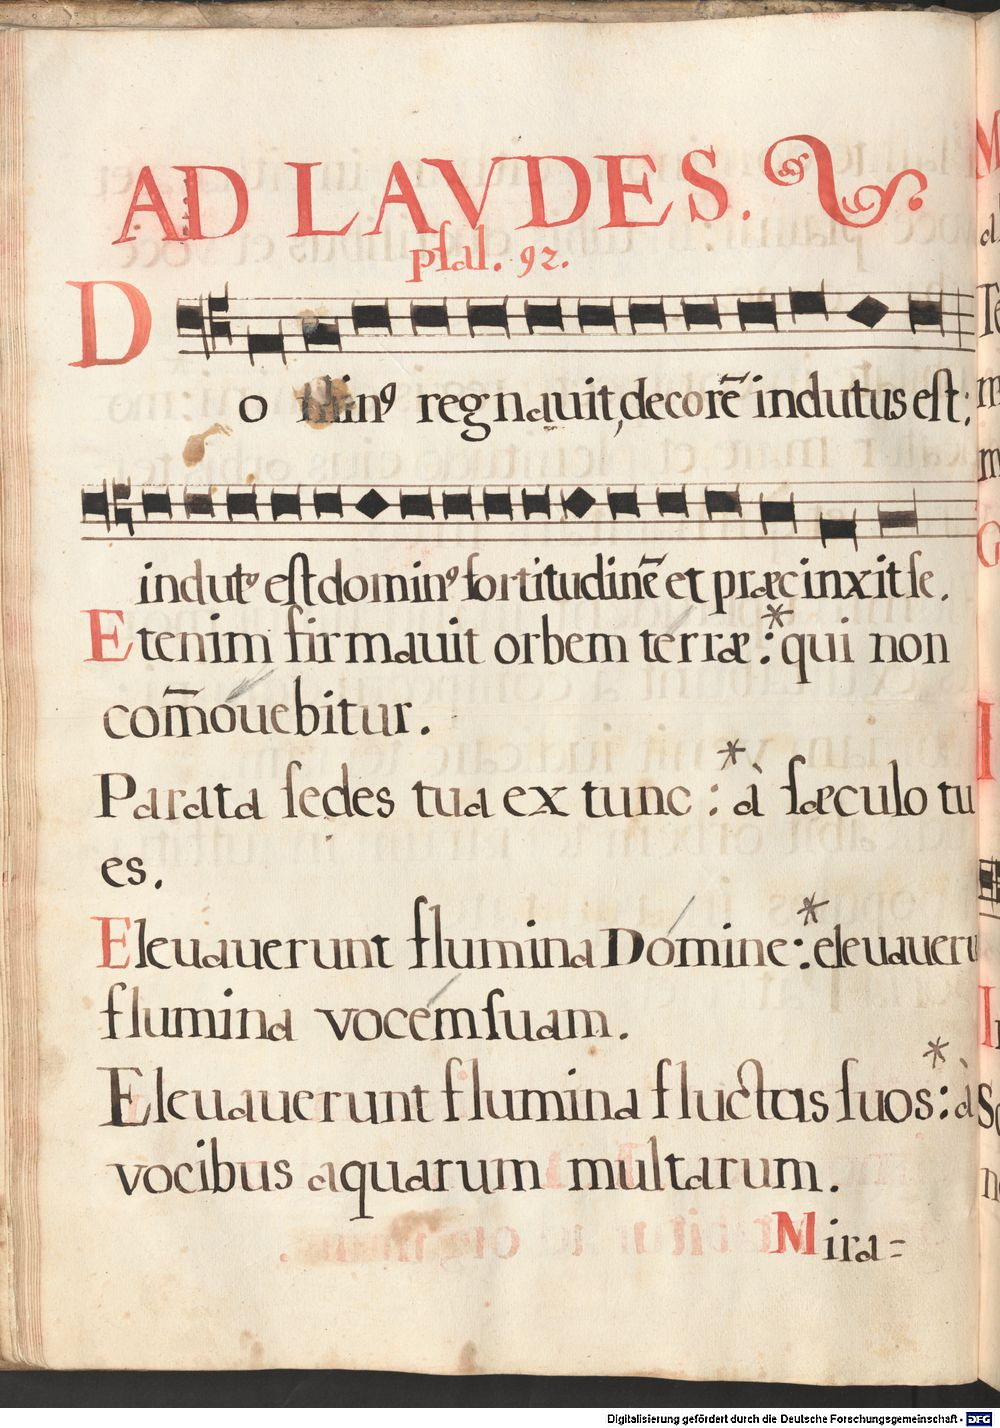 AD LAVDES.
psal. 92.
D
o minꝰ regnauit, decorẽ indutus est:
indutꝰ est dominꝰ fortitudinẽ et præcinxit se.
Etenim firmauit orbem terræ :* qui non
com̃ouebitur.
Parata sedes tua ex tunc :* à sæculo tu
es.
Eleuauerunt flumina Domine :* eleuaueru
flumina vocem suam.
Eleuauerunt flumina fluctus suos :* à
vocibus aquarum multarum.
Mira=
Digitalisierung gefördert durch die Deutsche Forschungsgemeinschaft - DFG